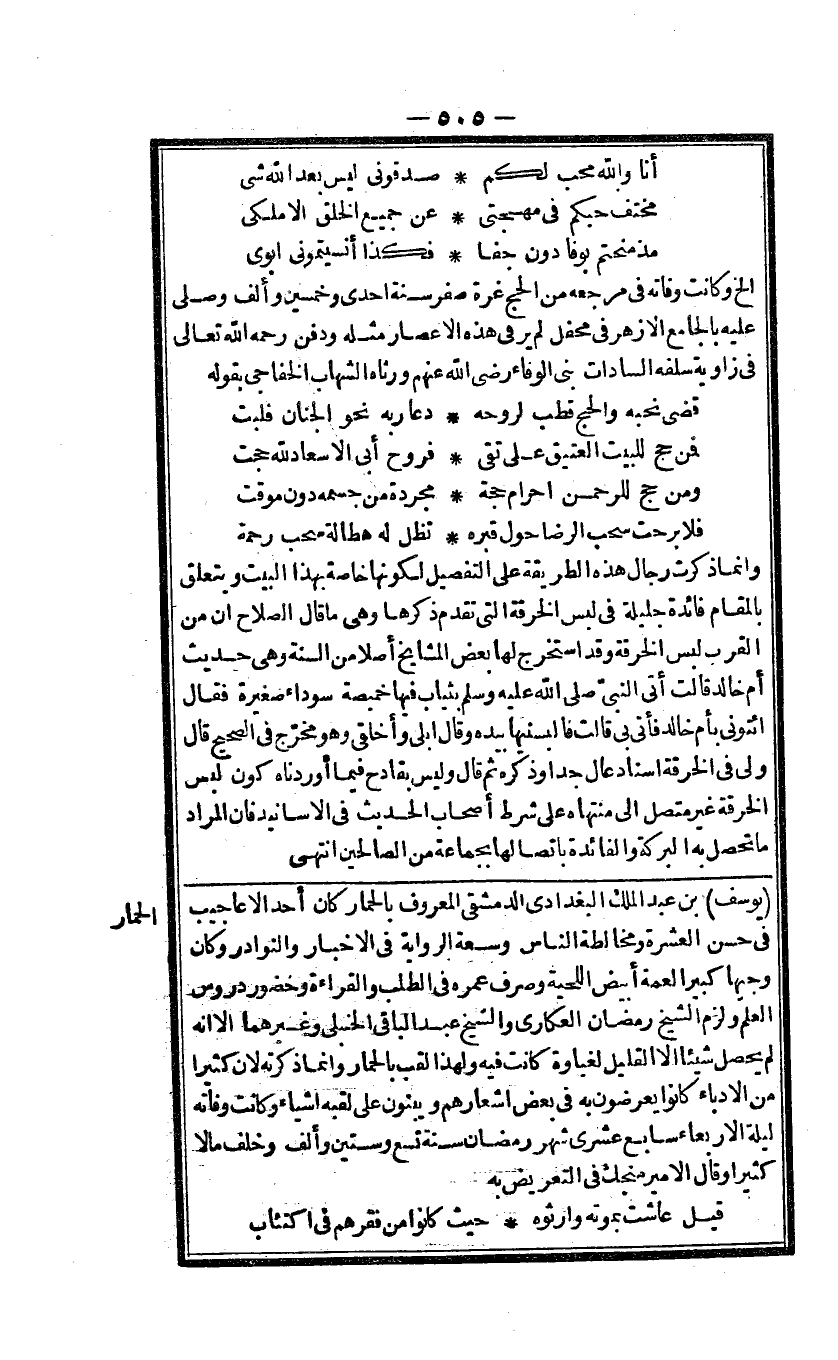 — ٥٠٥ —
أنا والله محب لكم * صدقونى ليس بعد الله شى
مختف حبكم فى مهجتى * عن جميع الخلق الا ملكى
مذ منحتم بوفا دون جفا * فكذا أنسيتمونى ابوى
الخ وكانت وفاته فى مرجعه من الحج غرة صفر سنة احدى وخمسين وألف وصلى
عليه بالجامع الازهر فى محفل لم ير فى هذه الاعصار مثله ودفن رحمه الله تعالى
فى زاوية سلفه السادات بنى الوفاء رضى الله عنهم ورثاه الشهاب الخفاجى بقوله
قضى نحبه والحج قطب لروحه * دعا ربه نحو الجنان فلبت
فمن حج للبيت العتيق على تقى * فروح أبى الاسعاد لله حجت
ومن حج للرحمن احرام حجة * مجردة من جسمه دون موقت
فلا برحت سحب الرضا حول قبره * تظل له هطالة سحب رحمة
وانما ذكرت رجال هذه الطريقة على التفصيل لكونها خاصة بهذا البيت ويتعلق
بالمقام فائدة جليلة فى لبس الخرقة التى تقدم ذكرها وهى ما قال الصلاح ان من
القرب لبس الخرقة وقد استخرج لها بعض المشايخ أصلا من السنة وهى حديث
أم خالد قالت أتى النبىّ صلى الله عليه وسلم بثياب فيها خميصة سوداء صغيرة فقال
ائتونى بأم خالد فأتى بى قالت فالبسنيها بيده وقال ابلى وأخلقى وهو مخرّج فى الصحيح قال
ولى فى الخرقة اسناد عال جدا وذكره ثم قال وليس بقادح فيما أوردناه كون لبس
الخرقة غير متصل الى منتهاه على شرط أصحاب الحديث فى الاسانيد فان المراد
ما تحصل به البركة والفائدة باتصالها بجماعة من الصالحين انتهى
الحمار
(يوسف) بن عبد الملك البغدادى الدمشقى المعروف بالحمار كان أحد الاعاجيب
فى حسن العشرة ومخالطة الناس وسعة الرواية فى الاخبار والنوادر وكان
وجيها كبير العمة أبيض اللحية وصرف عمره فى الطلب والقراءة وحضور دروس
العلم ولزم الشيخ رمضان العكارى والشيخ عبد الباقى الحنبلى وغيرهما الا انه
لم يحصل شيئا الا القليل لغباوة كانت فيه ولهذا لقب بالحمار وانما ذكرته لان كثيرا
من الادباء كانوا يعرضون به فى بعض اشعارهم ويبنون على لقبه اشياء وكانت وفاته
ليلة الاربعاء سابع عشرى شهر رمضان سنة تسع وستين وألف وخلف مالا
كثيرا وقال الامير منجك فى التعريض به
قيل عاشت بموته وارثوه * حيث كانوا من فقرهم فى اكتئاب